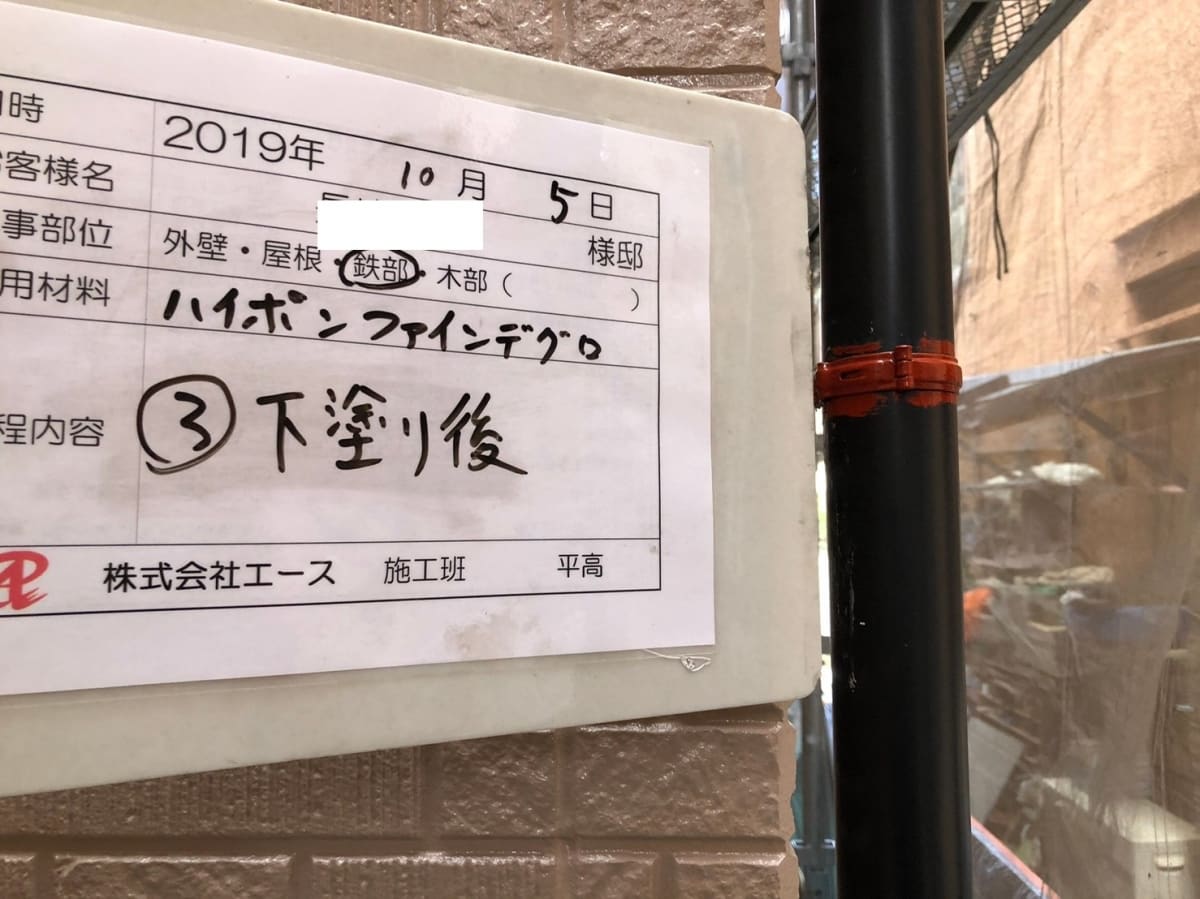 時 2019年 10月 5日
客様名 様邸
事部位 外壁・屋根・鉄部・木部( )
用材料 ハイポンファインデグロ
程内容 ③下塗り後
株式会社エース 施工班 平高